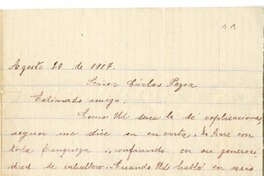 Agosto 20 de 1907.
Señor Cárlos Pezoa
Estimado amigo:
Como Ud. de esplicaciones
segun me dice en su carta,
toda franqueza, confiando en su generosi
dad de caballero. Cuando Ud. habló en